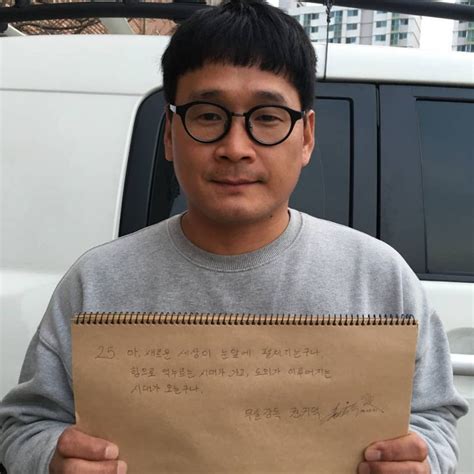 25 아, 새로운 세상이 눈앞에 펼쳐지는구나.
힘으로 억누르는 시대가 가고, 도의가 이루어지는
시대가 오는구나.
무술감독